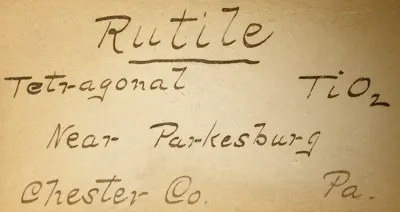 Rutile
Tetragonal TiO₂
Near Parkesburg
Chester Co. Pa.